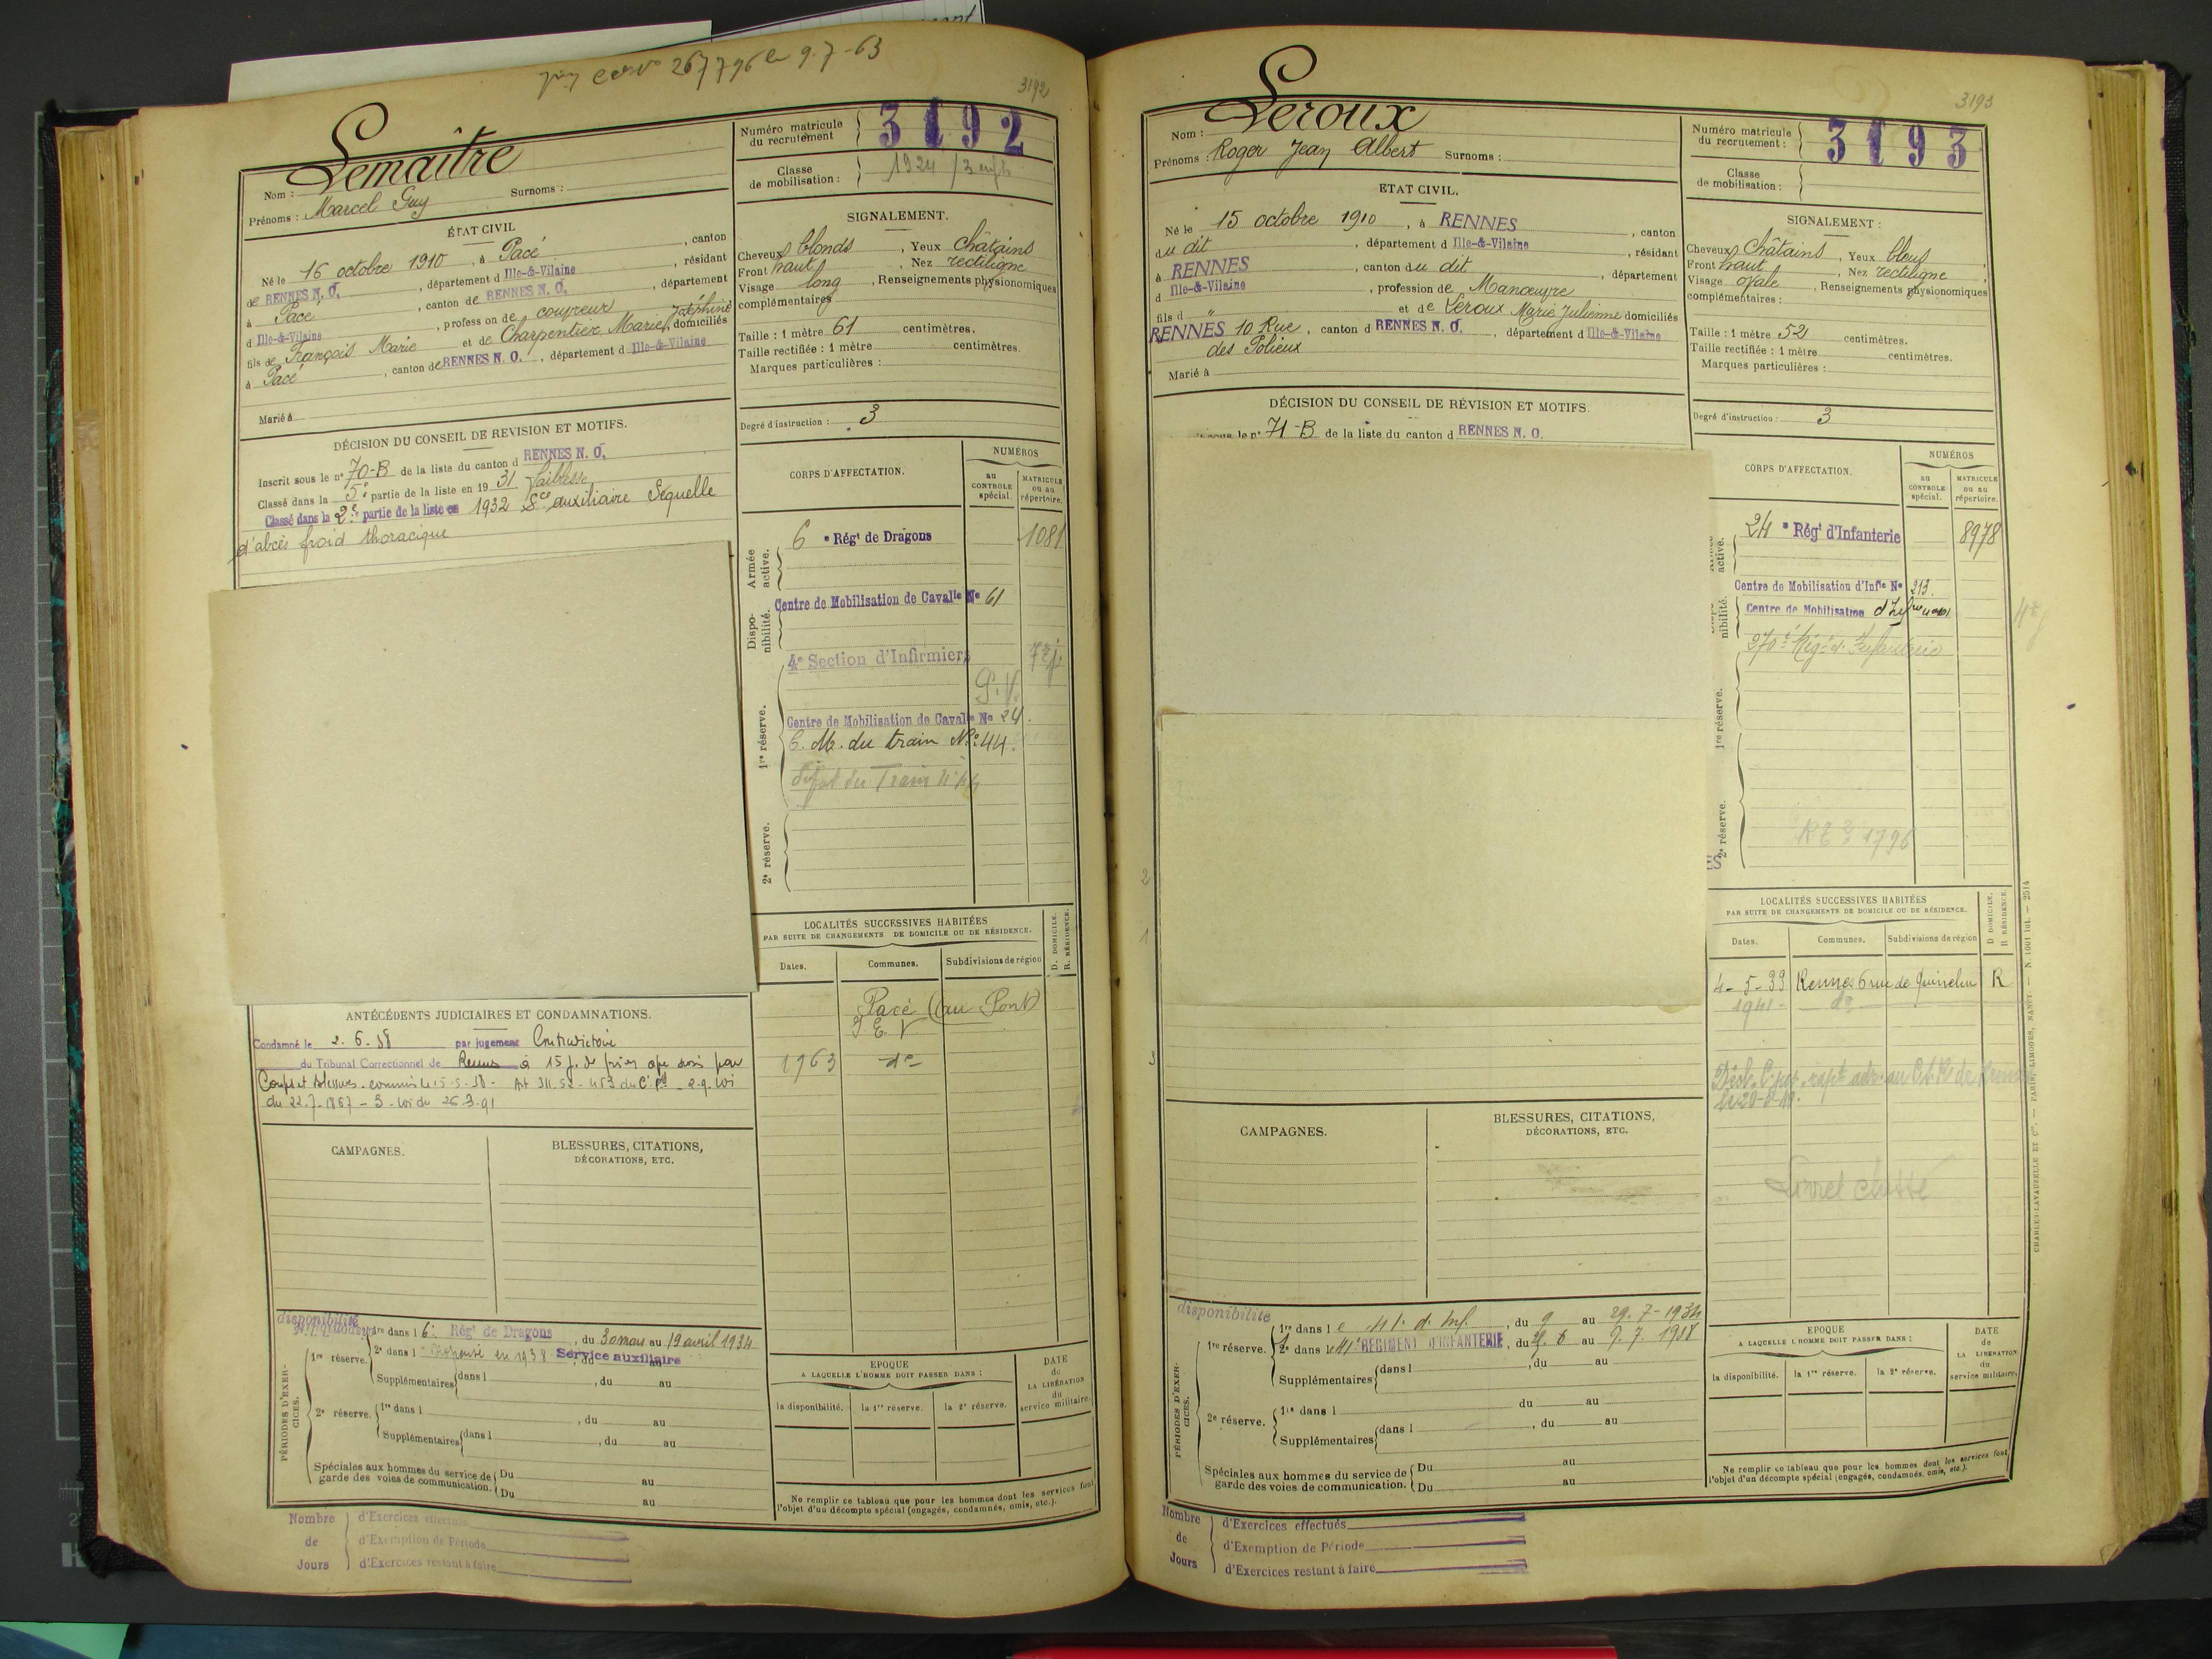 267796 le 9-7-63
3192
Lemaître
Nom :
Prénoms : Marcel Guy Surnoms :
Numéro matricule du recrutement 3192
Classe de mobilisation : 1924
ÉTAT CIVIL
Né le 16 octobre 1910, à Pacé, canton
de RENNES N. O., département d Ille-&-Vilaine, résidant
à Pacé, canton de RENNES N. O., département
d Ille-&-Vilaine, profession de coupreur
fils de François Marie et de Charpentier Marie Joséphine domiciliés
à Pacé, canton de RENNES N. O., département d Ille-&-Vilaine
Marié à
SIGNALEMENT.
Cheveux blonds, Yeux châtains
Front haut, Nez rectiligne
Visage long, Renseignements physionomiques
complémentaires
Taille : 1 mètre 61 centimètres.
Taille rectifiée : 1 mètre centimètres.
Marques particulières :
Degré d'instruction : 3
DÉCISION DU CONSEIL DE REVISION ET MOTIFS.
Inscrit sous le n° 70-B de la liste du canton d RENNES N. O.
Classé dans la 5e partie de la liste en 19 31 Faiblesse
Classé dans la 2e partie de la liste en 1932 Sce auxiliaire Séquelle
d'abcès froid thoracique
CORPS D'AFFECTATION.
NUMÉROS
au CONTROLE spécial.
MATRICULE ou au répertoire.
Armée active.
6e Régt de Dragons 1081
Dispo-nibilité.
Centre de Mobilisation de Cavalie No 61
1re réserve.
4e Section d'Infirmiers
Centre de Mobilisation de Cavalie No 24.
C. M. du train No 44.
2e réserve.
LOCALITÉS SUCCESSIVES HABITÉES
PAR SUITE DE CHANGEMENTS DE DOMICILE OU DE RÉSIDENCE.
D. DOMICILE.
R. RÉSIDENCE.
Dates. Communes. Subdivisions de région
Pacé (au Pont)
1963 do
ANTÉCÉDENTS JUDICIAIRES ET CONDAMNATIONS.
Condamné le 2.6.38 par jugement Contradictoire
du Tribunal Correctionnel de Rennes à 15 j. de prison avec sursis pour
Coups et blessures commis le 15-5-38 - Art 311.52 - 463 du C. Pal - 2.9. loi
du 22.7.1867 - 3. loi du 26.3.91
CAMPAGNES.
BLESSURES, CITATIONS,
DÉCORATIONS, ETC.
disponibilité
PÉRIODES D'EXERCICES.
1re réserve. 1re dans l 6e Régt de Dragons, du 30 mars au 19 avril 1934
2e dans l en 1938 Service auxiliaire
Supplémentaires dans l , du au
2e réserve. 1re dans l , du au
Supplémentaires dans l , du au
Spéciales aux hommes du service de garde des voies de communication. Du au
Du au
EPOQUE
A LAQUELLE L'HOMME DOIT PASSER DANS :
la disponibilité. la 1re réserve. la 2e réserve.
DATE de LA LIBÉRATION du service militaire.
Ne remplir ce tableau que pour les hommes dont les services font
l'objet d'un décompte spécial (engagés, condamnés, omis, etc.).
Nombre de Jours
d'Exercices effectués
d'Exemption de Période
d'Exercices restant à faire
3193
Leroux
Nom :
Prénoms : Roger Jean Albert Surnoms :
Numéro matricule du recrutement : 3193
Classe de mobilisation :
ETAT CIVIL.
Né le 15 octobre 1910, à RENNES, canton
du dit, département d Ille-&-Vilaine, résidant
à RENNES, canton du dit, département
d Ille-&-Vilaine, profession de Manœuvre
fils d " et de Leroux Marie Julienne domiciliés
RENNES 10 Rue, canton d RENNES N. O., département d Ille-&-Vilaine
des Polieux
Marié à
SIGNALEMENT :
Cheveux Châtains, Yeux bleus
Front haut, Nez rectiligne
Visage ovale, Renseignements physionomiques
complémentaires :
Taille : 1 mètre 52 centimètres.
Taille rectifiée : 1 mètre centimètres.
Marques particulières :
Degré d'instruction : 3
DÉCISION DU CONSEIL DE RÉVISION ET MOTIFS.
sous le n° 71-B de la liste du canton d RENNES N. O.
CORPS D'AFFECTATION.
NUMÉROS
au CONTROLE spécial.
MATRICULE ou au répertoire.
active.
24e Régt d'Infanterie 8978
nibilité.
Centre de Mobilisation d'Infie No 213.
Centre de Mobilisation
270e Régt d'Infanterie
1re réserve.
2e réserve.
1796
LOCALITÉS SUCCESSIVES HABITÉES
PAR SUITE DE CHANGEMENTS DE DOMICILE OU DE RÉSIDENCE.
D DOMICILE.
R RÉSIDENCE.
Dates. Communes. Subdivisions de région
4-5-39 Rennes 6 rue de Quineleu R
1941 - do
Livret classé
CAMPAGNES.
BLESSURES, CITATIONS,
DÉCORATIONS, ETC.
disponibilité
PÉRIODES D'EXERCICES.
1re réserve. 1re dans l e 41e d'Inf., du 9 au 29.7-1934
2e dans le 41e REGIMENT D'INFANTERIE, du au 9.7.1938
Supplémentaires dans l , du au
2e réserve. 1re dans l du au
Supplémentaires dans l , du au
Spéciales aux hommes du service de garde des voies de communication. Du au
Du au
EPOQUE
A LAQUELLE L'HOMME DOIT PASSER DANS :
la disponibilité. la 1re réserve. la 2e réserve.
DATE de LA LIBÉRATION du service militaire.
Ne remplir ce tableau que pour les hommes dont les services font
l'objet d'un décompte spécial (engagés, condamnés, omis, etc.).
Nombre de Jours
d'Exercices effectués
d'Exemption de Période
d'Exercices restant à faire
CHARLES-LAVAUZELLE ET Cie. — PARIS, LIMOGES, NANCY. — N. 1001 int. — 2514